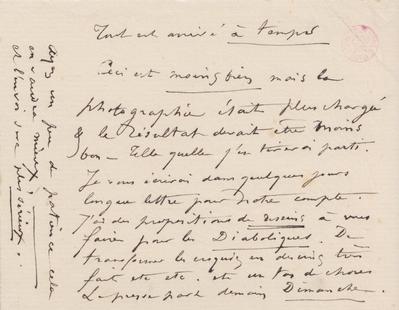 Tout est arrivé à temps
Ceci est moins bien mais la
photographie était plus chargée
& le résultat devait être moins
bon — Telle quelle j'en tirerai parti.
Je vous écrirai dans quelques jours
longue lettre pour notre compte.
J'ai des propositions de dessins à vous
faire pour les Diaboliques. De
transformer les croquis en dessins très
fait etc etc. et un tas de choses
Le presse part demain Dimanche.
Ayez un peu de patience cela
en vaudra mieux
et l'envoi sera plus sérieux.